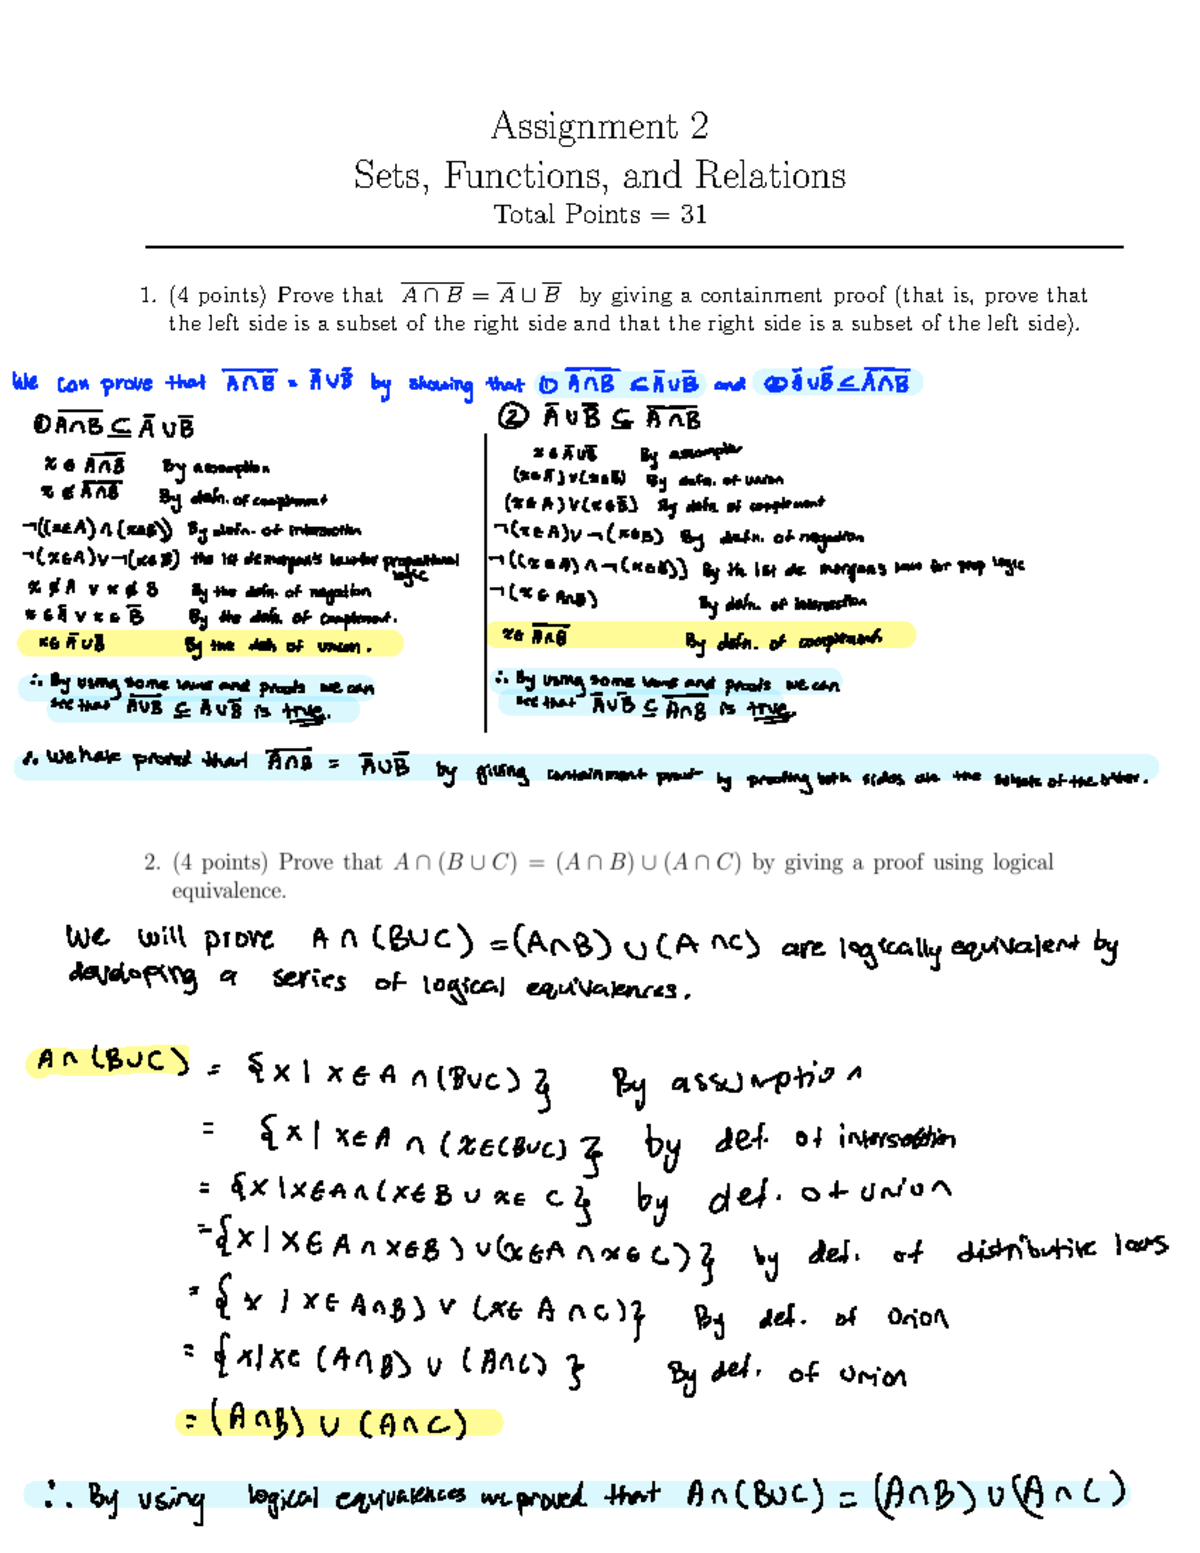 Assignment 2
Sets, Functions, and Relations
Total Points = 31
1. (4 points) Prove that A̅ ̅∩̅ ̅B̅ = A̅ ∪ B̅ by giving a containment proof (that is, prove that
the left side is a subset of the right side and that the right side is a subset of the left side).
We can prove that A̅∩̅B̅ = A̅∪B̅ by showing that ① A̅∩̅B̅ ⊆ A̅∪B̅ and ② A̅∪B̅ ⊆ A̅∩̅B̅
① A̅∩̅B̅ ⊆ A̅ ∪ B̅
x ∈ A̅∩̅B̅ By assumption
x ∉ A̅∩̅B̅ By defn. of complement
¬((x∈A) ∧ (x∈B)) By defn. of intersection
¬(x∈A) ∨ ¬(x∈B) the 1st demorgan's law for propositional
logic
x ∉ A ∨ x ∉ B By the defn. of negation
x ∈ A̅ ∨ x ∈ B̅ By the defn. of complement.
x ∈ A̅ ∪ B̅ By the defn of union.
∴ By using some laws and proofs we can
see that A̅∪̅B̅ ⊆ A̅∪B̅ is true.
② A̅ ∪ B̅ ⊆ A̅∩̅B̅
x ∈ A̅∪B̅ By assumption
(x∈A̅) ∨ (x∈B̅) By defn. of union
(x∈A) ∨ (x∈B̅) By defn of complement
¬(x∈A) ∨ ¬(x∈B) By defn. of negation
¬((x∈A) ∧ ¬(x∈B)) By the 1st de morgans law for prop logic
¬(x ∈ A∩B) By defn. of intersection
x∈ A̅∩̅B̅ By defn. of complement
∴ By using some laws and proofs we can
see that A̅∪B̅ ⊆ A̅∩̅B̅ is true.
∴ We have proved that A̅∩̅B̅ = A̅∪B̅ by giving containment proof by proofing both sides are the subsets of the other.
2. (4 points) Prove that A ∩ (B ∪ C) = (A ∩ B) ∪ (A ∩ C) by giving a proof using logical
equivalence.
We will prove A ∩ (B∪C) = (A∩B) ∪ (A ∩C) are logically equivalent by
developing a series of logical equivalences.
A∩ (B∪C) = {x | x ∈ A ∩ (B∪C) } By assumption
= {x | x∈A ∩ (x∈(B∪C) } by def. of intersection
= {x | x∈A ∩ (x∈B ∪ x∈ C } by def. of union
= {x | x∈ A ∩ x∈B ) ∪ (x∈A ∩ x∈ C ) } by def. of distributive laws
= { x | x∈ A∩B ) ∨ (x∈ A ∩C )} By def. of Union
= { x|x∈ (A∩B) ∪ (A∩C) } By def. of Union
= (A∩B) ∪ (A∩C)
∴ By using logical equivalences we proved that A∩(B∪C) = (A∩B) ∪ (A∩C)